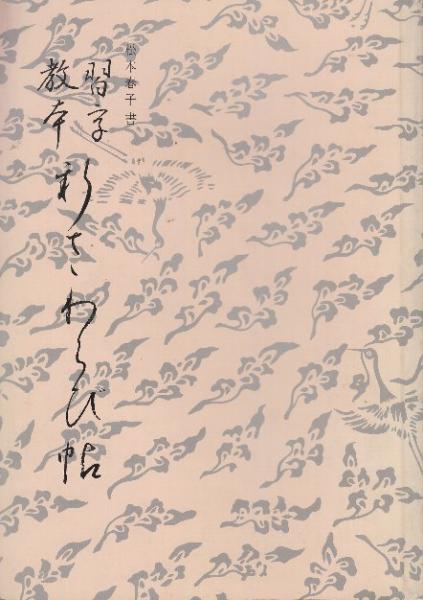 松本春子書
習字
教本
新さわらび帖